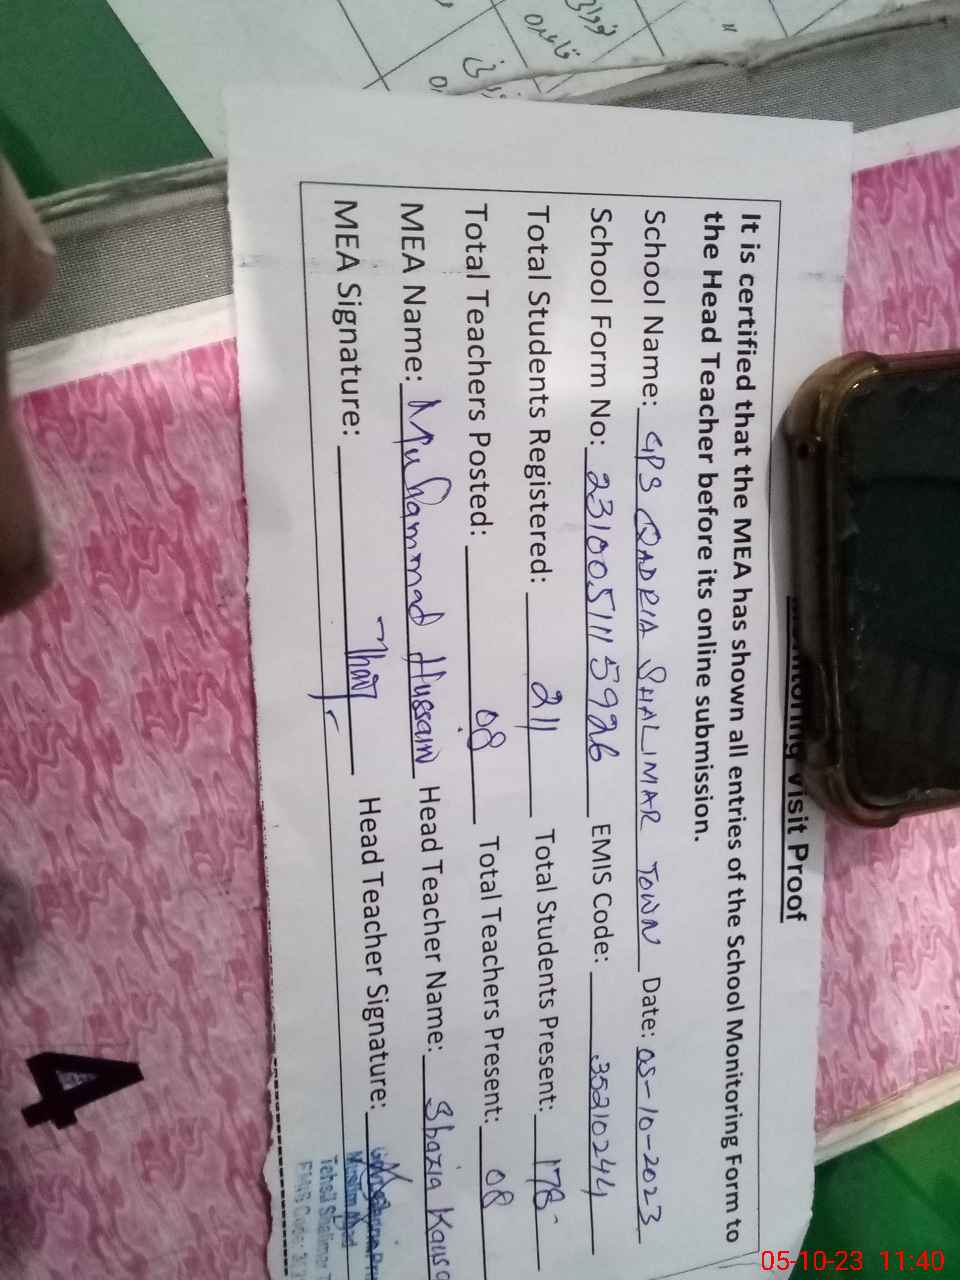 Visit Proof
It is certified that the MEA has shown all entries of the School Monitoring Form to
the Head Teacher before its online submission.
School Name: GPS QADRIA SHALIMAR TOWN Date: 05-10-2023
School Form No: 2310051115926 EMIS Code: 35210244
Total Students Registered: 211 Total Students Present: 178
Total Teachers Posted: 08 Total Teachers Present: 08
MEA Name: Muhammad Hussain Head Teacher Name: Shazia
MEA Signature: Head Teacher Signature:
4
نورانی
قاعدہ
05-10-23 11:40